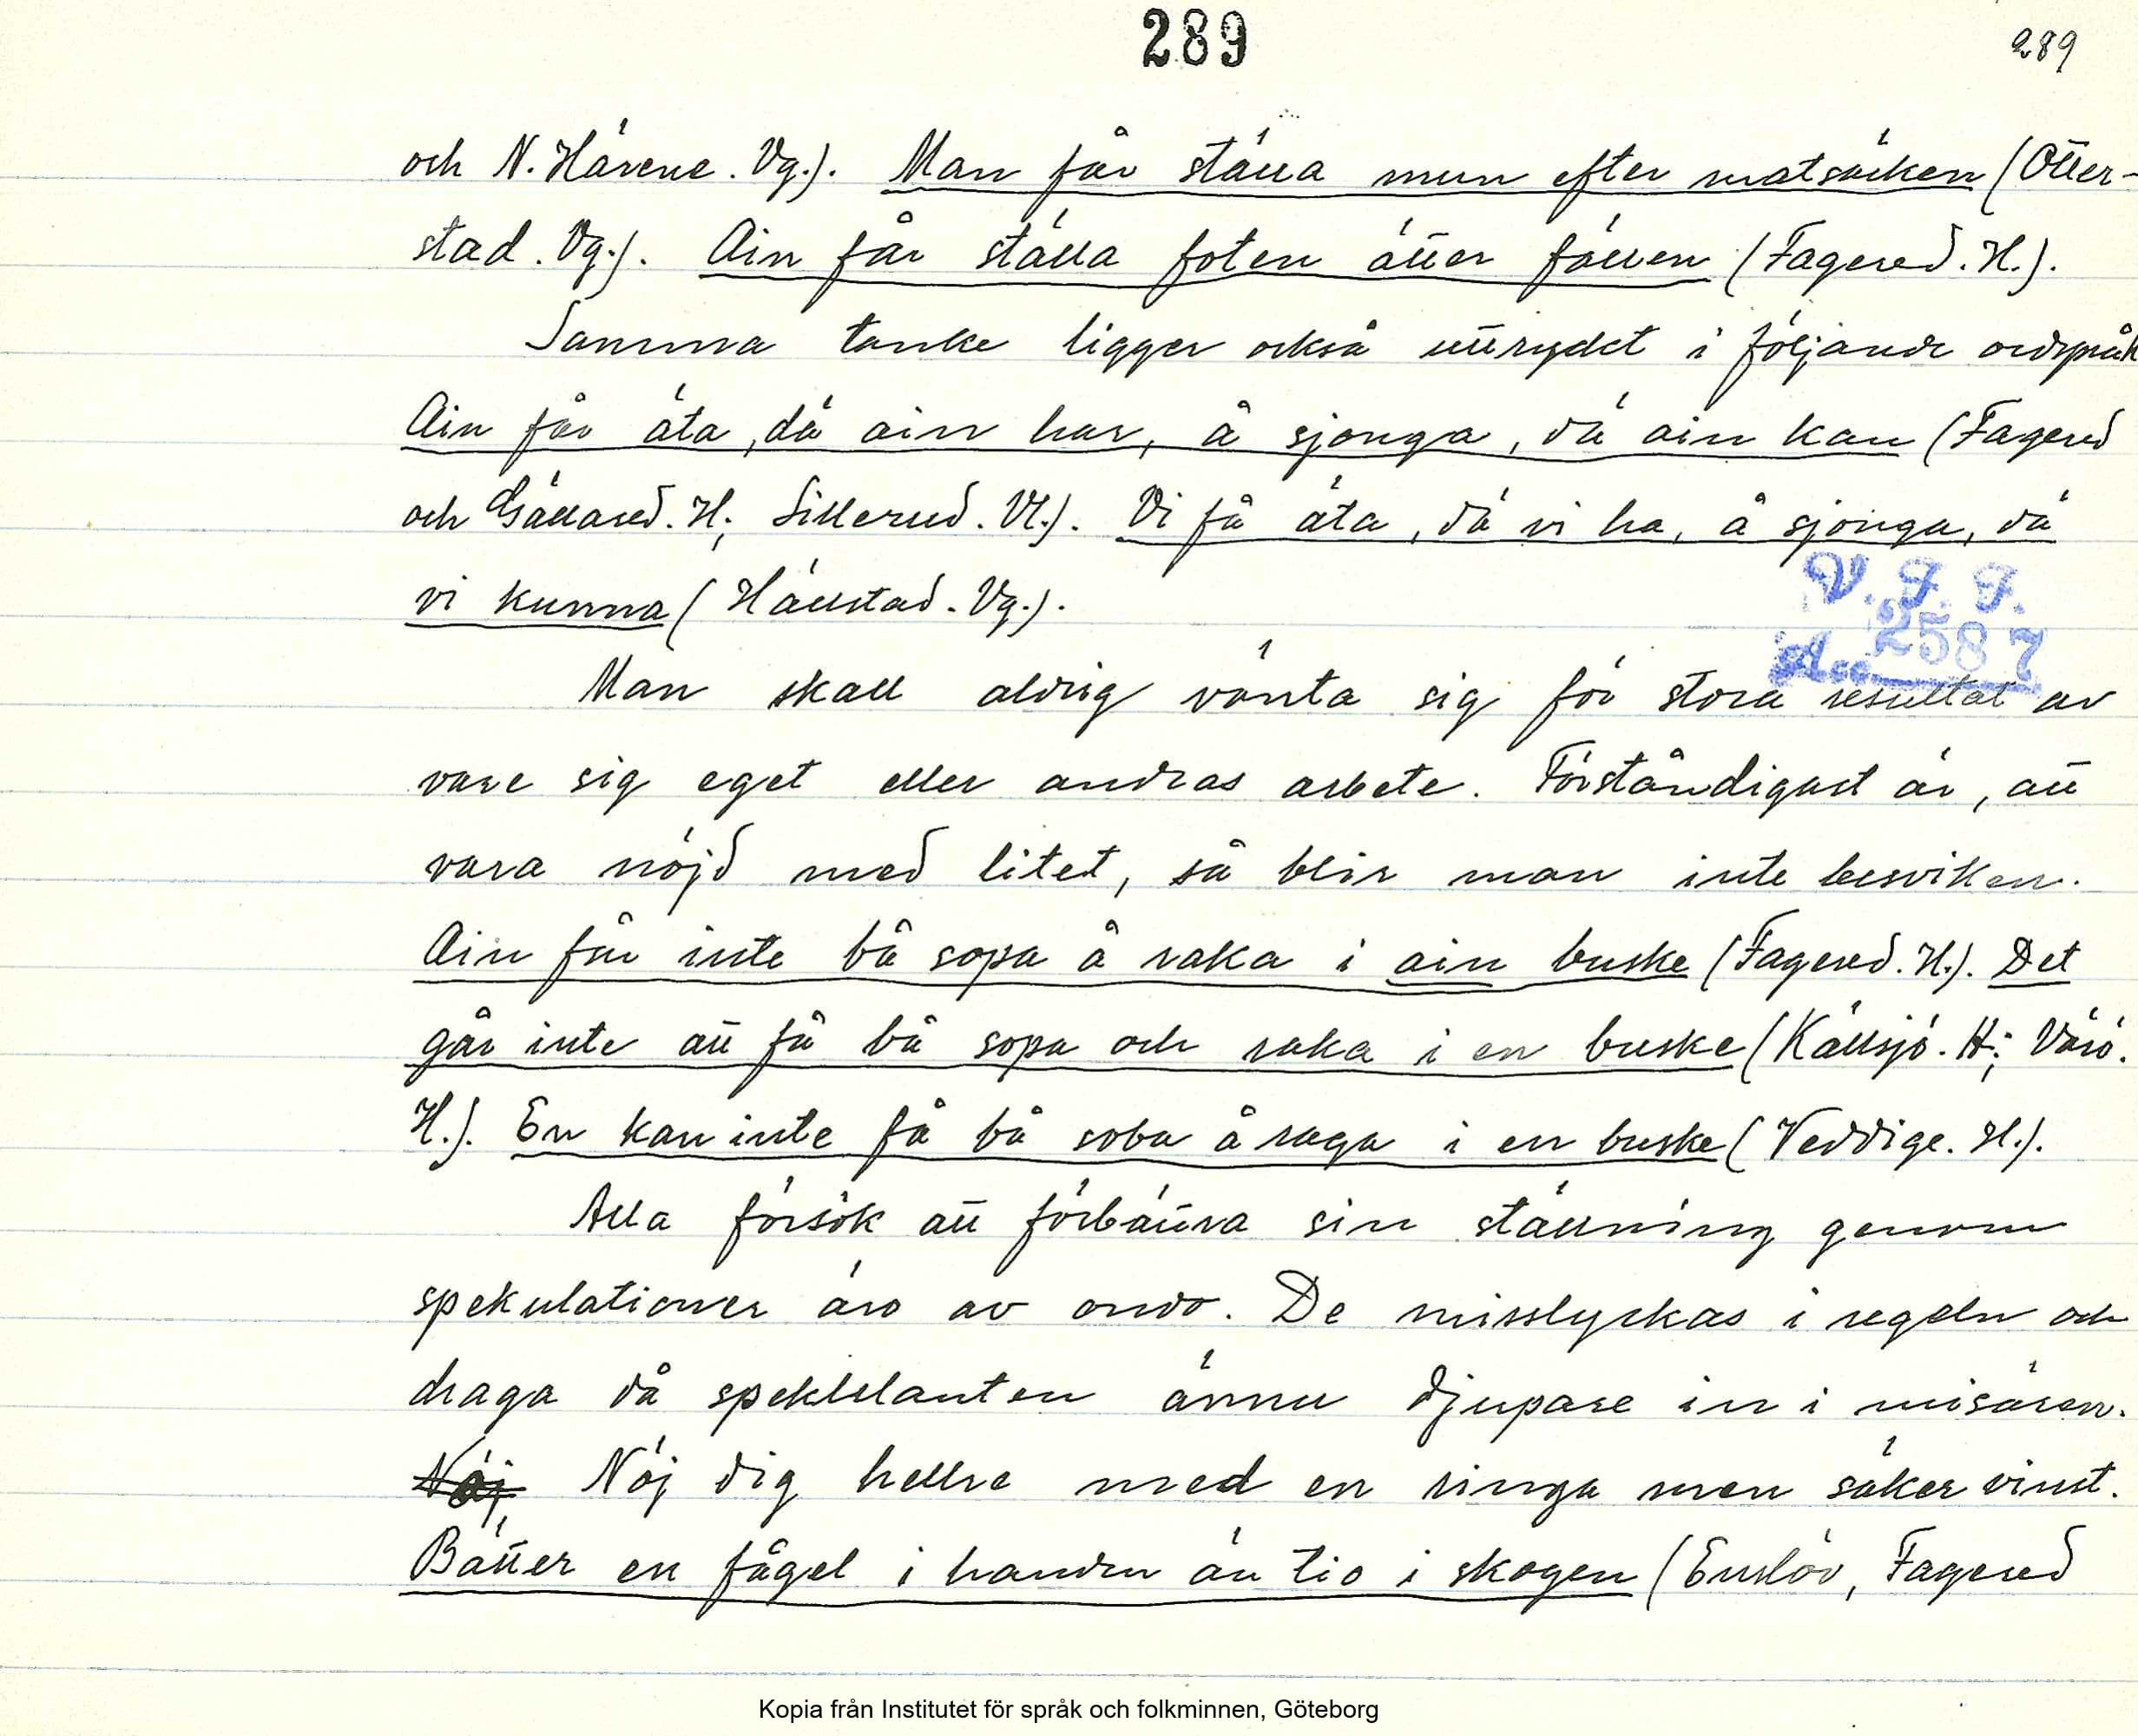 289
289
och N. Härene. Vg.). Man får ställa mun efter matsäcken (Otter-
stad. Vg.). Ain får ställa foten ätter fällen (Fagered. H.).
Samma tanke ligger också uttryckt i följande ordspråk
Ain får äta, dä ain har, å sjonga, dä ain kan (Fagered
och Gällared. H.; Sillerud. Vl.). Vi få äta, dä vi ha, å sjonga, dä
vi kunna (Hällstad. Vg.).
V. F. F.
2587
Acc.
Man skall aldrig vänta sig för stora resultat av
vare sig eget eller andras arbete. Förståndigast är, att
vara nöjd med litet, så blir man inte besviken.
Ain får inte bå sopa å raka i ain buske (Fagered. H.). Det
går inte att få bå sopa och raka i en buske (Källsjö. H.; Värö.
H.). En kan inte få bå soba å raga i en buske (Veddige. H.).
Alla försök att förbättra sin ställning genom
spekulationer äro av ondo. De misslyckas i regeln och
draga då spekulanten ännu djupare in i misären.
Nöj Nöj dig hellre med en ringa men säker vinst.
Bätter en fågel i handen än tio i skogen (Enslöv, Fagered
Kopia från Institutet för språk och folkminnen, Göteborg